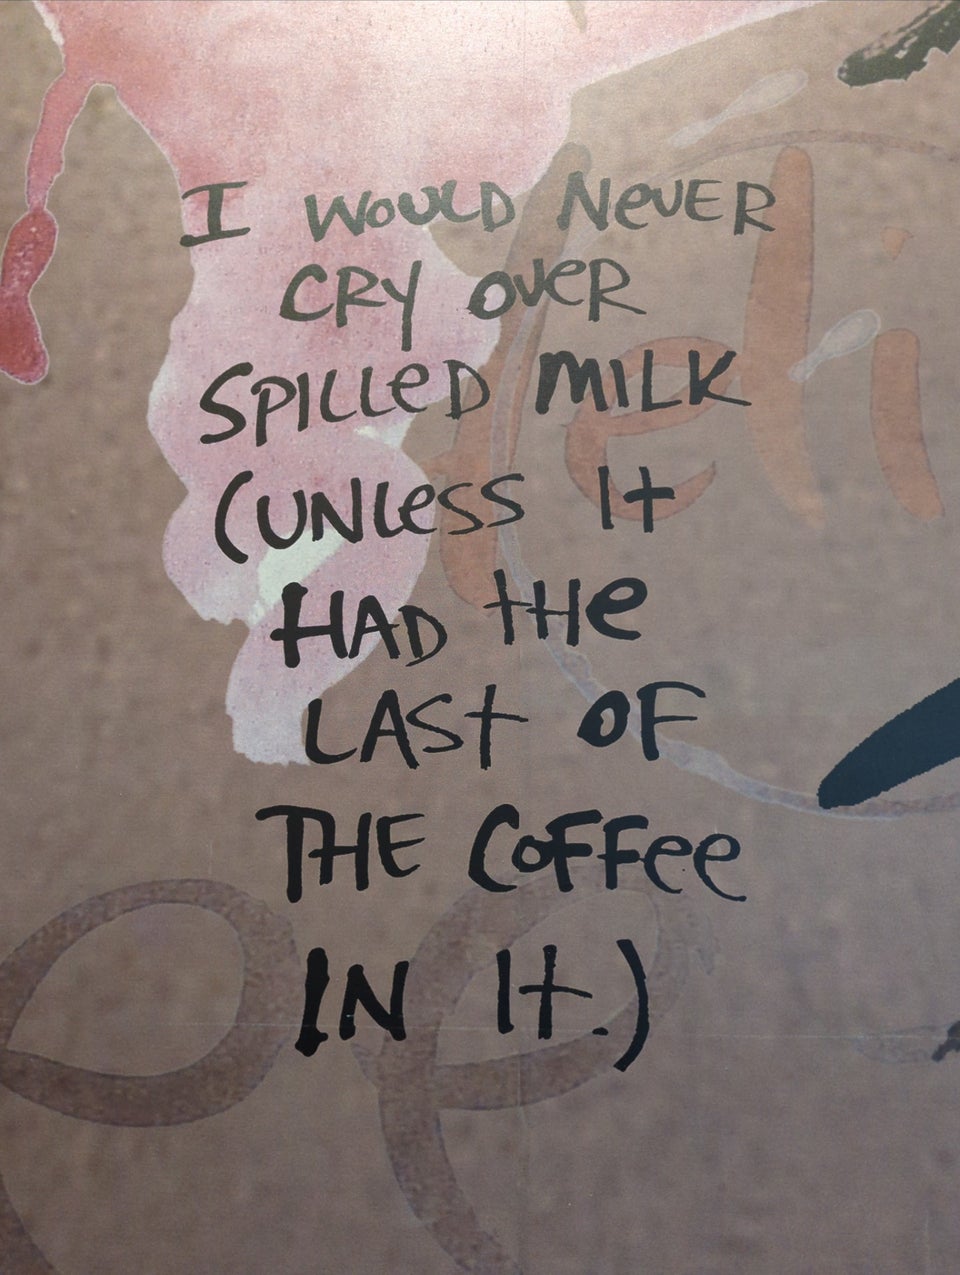 I WOULD NeveR
CRY OveR
SPILLeD MILK
(UNLeSS It
HAD tHe
LASt OF
THE COFFee
IN It.)